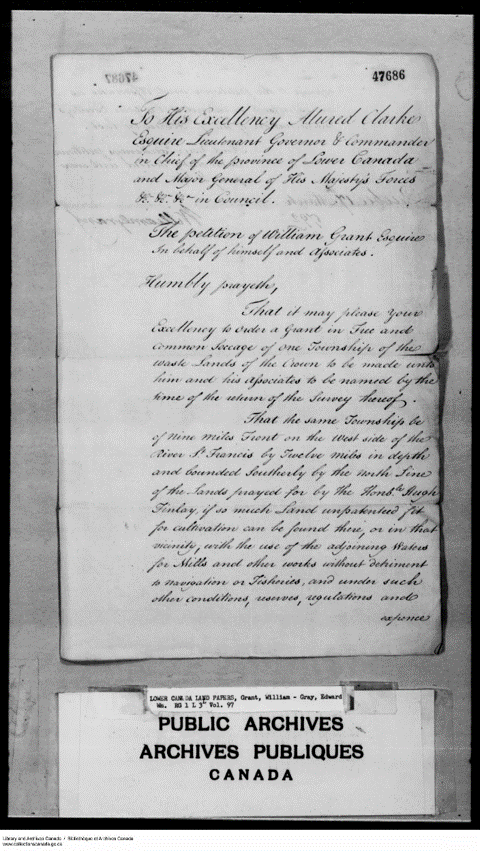 47687
47686
To His Excellency Alured Clarke
Esquire Lieutenant Governor & Commander
in Chief of the province of Lower Canada
and Major General of His Majesty's Forces
&c. &c. &c. in Council.
The petition of William Grant Esquire
In behalf of himself and Associates.
Humbly prayeth,
That it may please Your
Excellency to order a Grant in Free and
common Soccage of one Township of the
waste Lands of the Crown to be made unto
him and his Associates to be named by the
time of the return of the Survey thereof.
That the same Township be
of nine miles Front on the west side of the
River St. Francis by Twelve miles in depth
and bounded Southerly by the north Line
of the Lands prayed for by the Honble Hugh
Finlay, if so much Land unpatented fit
for cultivation can be found there, or in that
vicinity, with the use of the adjoining Waters
for Mills and other works without detriment
to navigation or Fisheries, and under such
other conditions, reserves, regulations and
expence
LOWER CANADA LAND PAPERS, Grant, William - Gray, Edward
Wm. RG 1 L 3 Vol. 97
PUBLIC ARCHIVES
ARCHIVES PUBLIQUES
CANADA
Library and Archives Canada • Bibliothèque et Archives Canada
www.collectionscanada.gc.ca